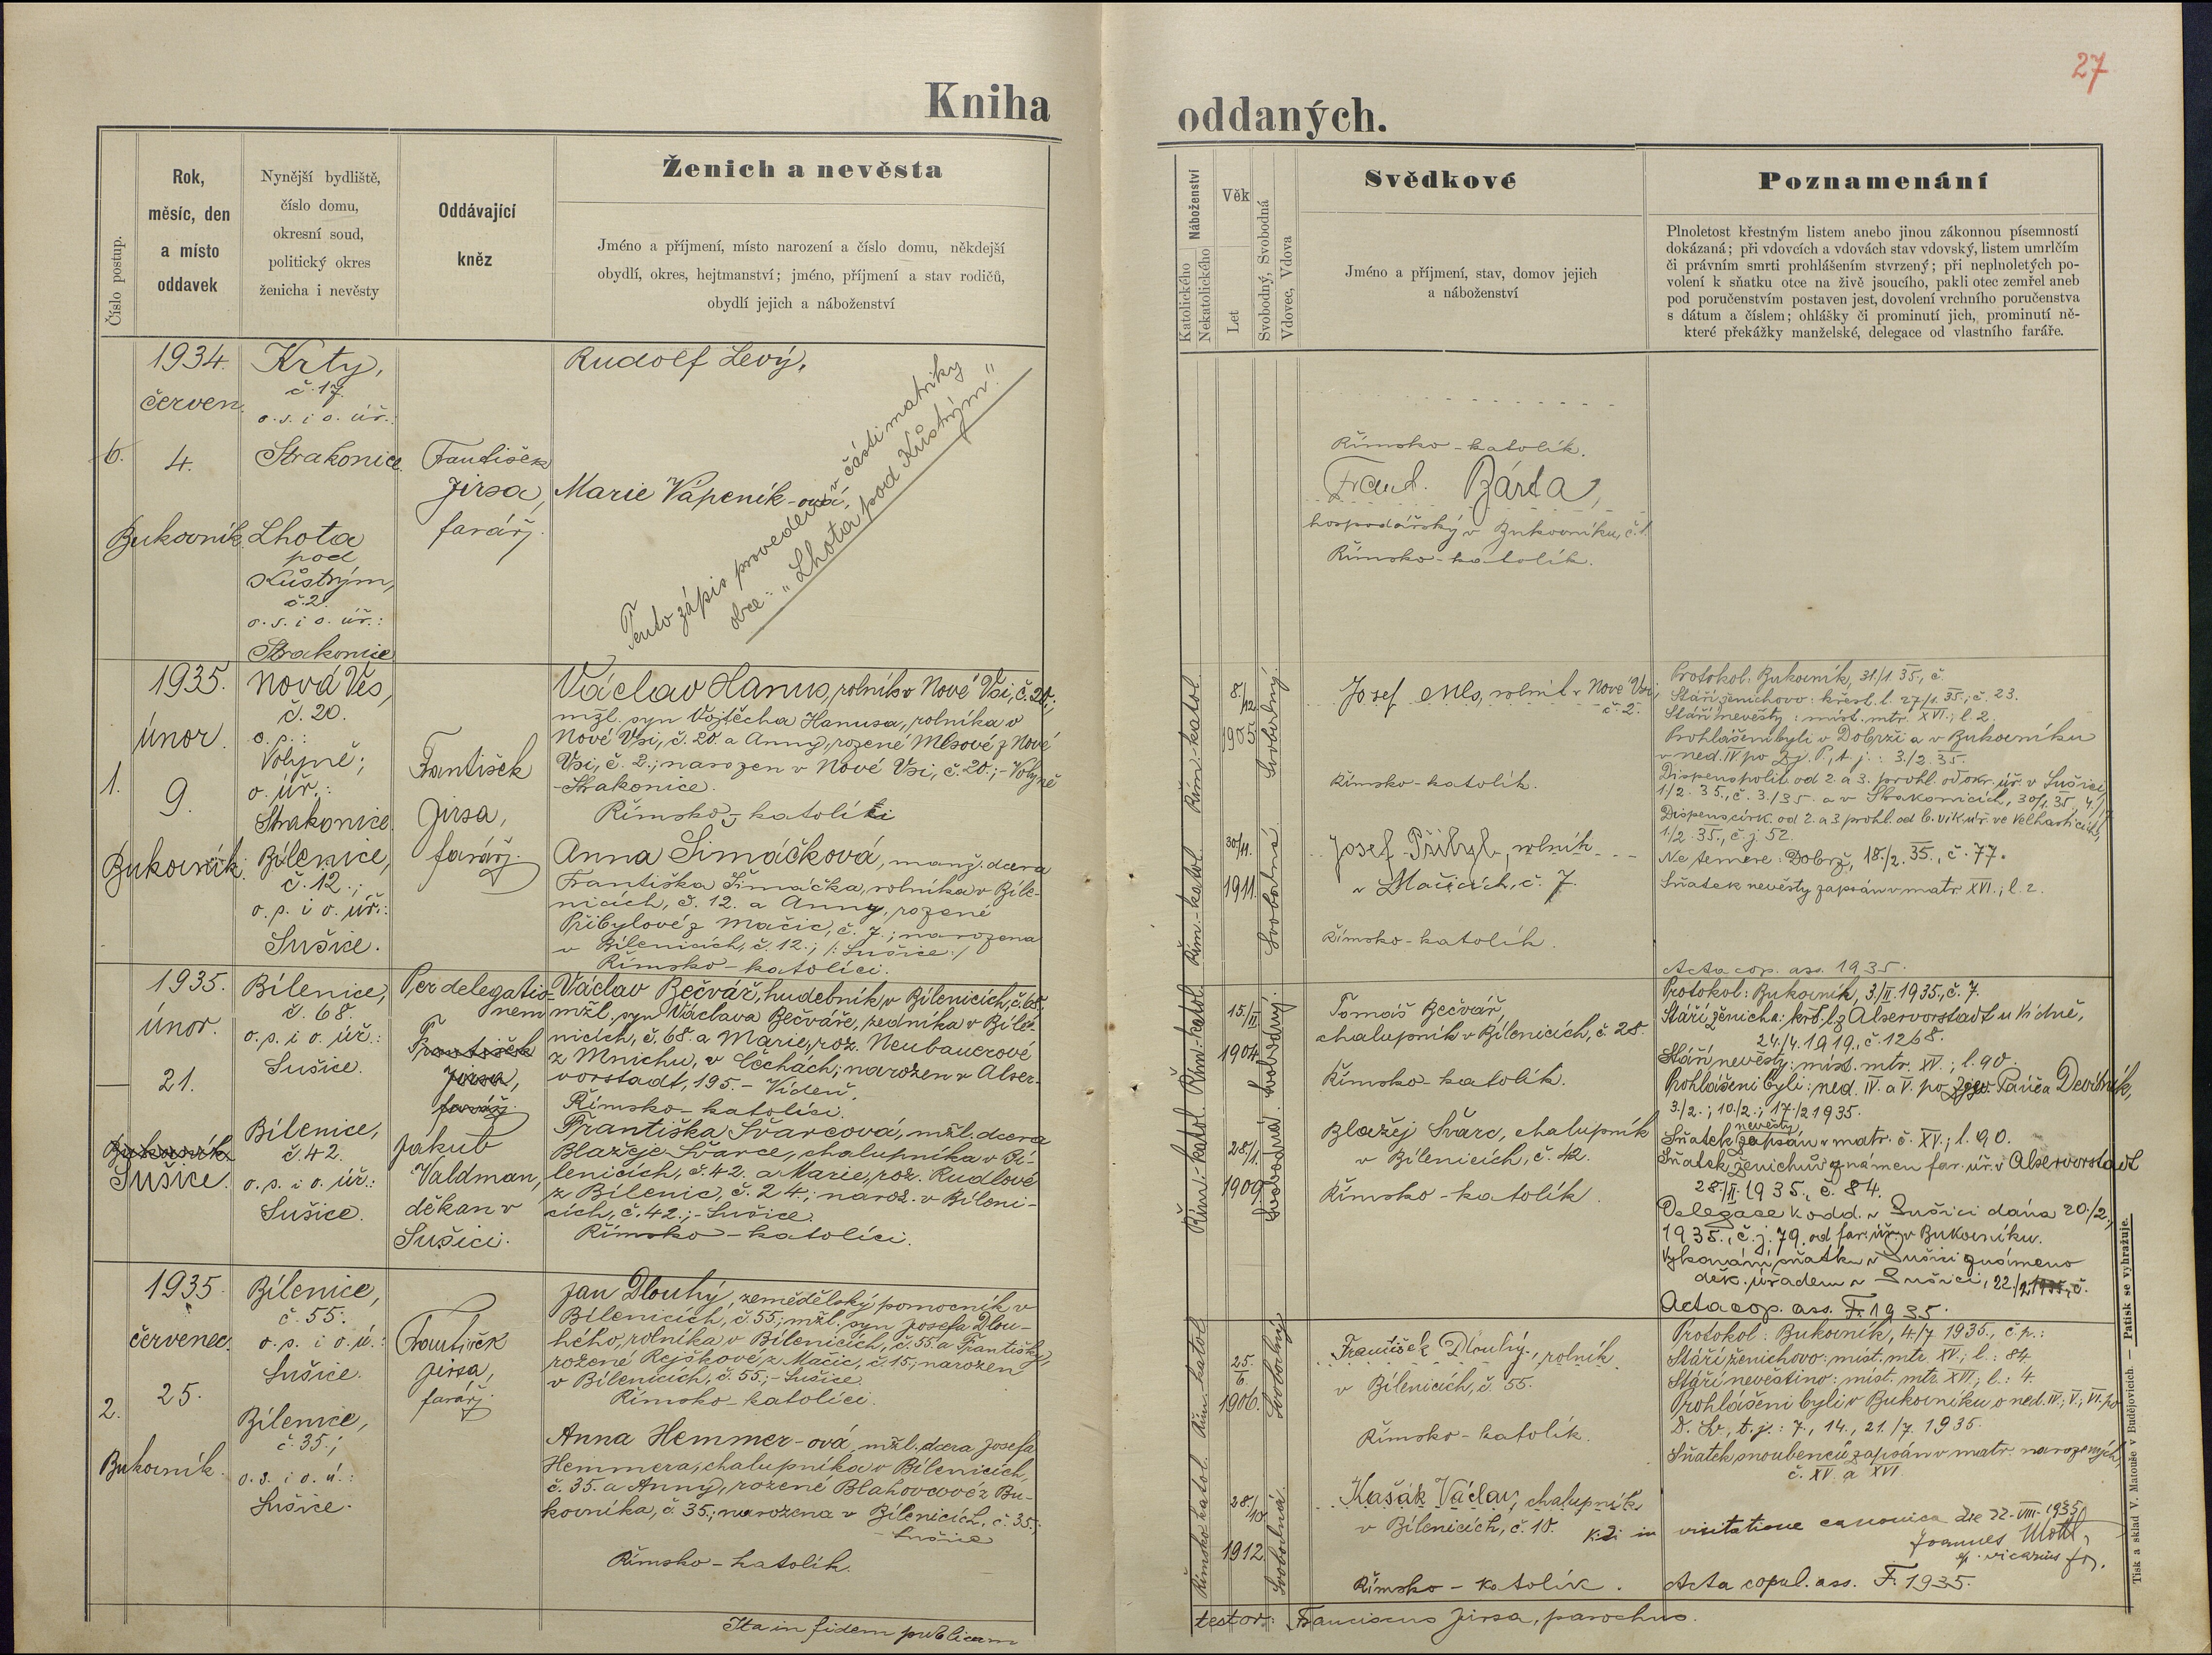 27
Kniha oddaných.
Číslo postup.
Rok,
měsíc, den
a místo
oddavek
Nynější bydliště,
číslo domu,
okresní soud,
politický okres
ženicha i nevěsty
Oddávající
kněz
Ženich a nevěsta
Jméno a příjmení, místo narození a číslo domu, někdejší
obydlí, okres, hejtmanství; jméno, příjmení a stav rodičů,
obydlí jejich a náboženství
Náboženství
Katolického
Nekatolického
Věk
Let
Svobodný, Svobodná
Vdovec, Vdova
Svědkové
Jméno a příjmení, stav, domov jejich
a náboženství
Poznamenání
Plnoletost křestným listem anebo jinou zákonnou písemností
dokázaná; při vdovcích a vdovách stav vdovský, listem umrlčím
či právním smrti prohlášením stvrzený; při neplnoletých po-
volení k sňatku otce na živě jsoucího, pakli otec zemřel aneb
pod poručenstvím postaven jest, dovolení vrchního poručenstva
s dátum a číslem; ohlášky či prominutí jich, prominutí ně-
které překážky manželské, delegace od vlastního faráře.
6.
1934.
červen
4.
Bukovník
Krty,
č. 17.
o. s. i o. úř.:
Strakonice
Lhota
pod
Kůstrým,
č. 2.
o. s. i o. úř.:
Strakonice
František
Jirsa,
farář.
Rudolf Levý,
Marie Vápeník-ová,
Tento zápis proveden v části matriky
obce: "Lhota pod Kůstrým."
Římsko-katolík.
Frant. Bárta,
hospodářský v Bukovníku, č. 1.
Římsko-katolík.
1.
1935.
únor.
9.
Bukovník.
Nová Ves,
č. 20.
o. s.:
Volyně;
o. úř.:
Strakonice.
Bílenice,
č. 12.;
o. s. i o. úř.:
Sušice.
František
Jirsa,
farář.
Václav Hanus, rolník v Nové Vsi, č. 20.;
mžl. syn Vojtěcha Hanusa, rolníka v
Nové Vsi, č. 20. a Anny, rozené Mlsové z Nové
Vsi, č. 2.; narozen v Nové Vsi, č. 20.; - Volyně
- Strakonice.
Římsko-katolíci
Anna Šimáčková, manž. dcera
Františka Šimáčka, rolníka v Bíle-
nicích, č. 12. a Anny, rozené
Přibylové z Mačic, č. 7.; narozena
v Bílenicích, č. 12.; /: Sušice :/
Římsko-katolíci.
Řím.-katol.
8./12
1905
Svobodný.
Řím.-katol.
30/11.
1911.
Svobodná.
Josef Mls, rolník v Nové Vsi,
č. 2.
Římsko-katolík.
Josef Přibyl, rolník
v Mačicích, č. 7.
Římsko-katolík.
Protokol: Bukovník, 31/1 35, č.
Stáří ženichovo: křest. l. 27/1. 35.; č. 23.
Stáří nevěsty: míst. mtr. XVI.; l. 2
Prohlášeni byli v Dobrši a v Bukovníku
v ned. IV po Zj. P., t. j.: 3./2. 35.
Dispens polit. od 2. a 3. prohl. od okr. úř. v Sušici,
1/2. 35., č. 3./35. a v Strakonicích, 30/1. 35,
Dispens círk. od 2. a 3 prohl. od b. vik. úř. ve Velharticích,
1./2. 35., č. j. 52.
Ne temere: Dobrš, 18./2. 35., č. 77.
Sňatek nevěsty zapsán v matr. XVI.; l. 2.
Acta cop. ass. 1935.
1935.
únor.
21.
Bukovník
Sušice.
Bílenice,
č. 68.
o. s. i o. úř.:
Sušice.
Bílenice,
č. 42.
o. s. i o. úř.:
Sušice.
Per delegatio-
nem
František
Jirsa,
farář.
Jakub
Valdman,
děkan v
Sušici.
Václav Bečvář, hudebník v Bílenicích, č. 68.
mžl. syn Václava Bečváře, zedníka v Bíle-
nicích, č. 68. a Marie, roz. Neubauerové
z Mnichu, v Čechách; narozen v Alser-
vorstadt, 195. - Vídeň.
Římsko-katolíci.
Františka Švarcová, mžl. dcera
Blažeje Švarce, chalupníka v Bí-
lenicích, č. 42. a Marie, roz. Rudlové
z Bílenic, č. 24.; naroz. v Bíleni-
cích, č. 42.; - Sušice.
Římsko-katolíci.
Řím.-katol.
15/II
1904
Svobodný.
Řím.-katol.
28/1.
1909
Svobodná.
Tomáš Bečvář,
chalupník v Bílenicích, č. 28.
Římsko-katolík.
Blažej Švarc, chalupník
v Bílenicích, č. 42.
Římsko-katolík.
Protokol: Bukovník, 3./II. 1935., č. 7.
Stáří ženicha: křt. l. z Alservorstadt u Vídně,
24./4. 1919., č. 1268.
Stáří nevěsty: míst. mtr. XV.; l. 90.
Prohlášeni byli: ned. IV. a V. po Zjev. Páně a Devítník,
3./2.; 10./2.; 17./2 1935.
Sňatek nevěsty zapsán v matr. č. XV.; l. 90.
Sňatek ženichův oznámen far. úř. v Alservorstadt
28./II. 1935., č. 84.
Delegace k odd. v Sušici dána 20./2.,
1935., č. j. 79. od far. úřv. v Bukovníku.
Vykonání sňatku v Sušici oznámeno
děk. úřadem v Sušici, 22./2 1935, č.
Acta cop. ass. F. 1935.
2.
1935
červenec.
25.
Bukovník.
Bílenice,
č. 55.
o. s. i o. ú.:
Sušice.
Bílenice,
č. 35.;
o. s. i o. ú.:
Sušice.
František
Jirsa,
farář.
Jan Dlouhý, zemědělský pomocník v
Bílenicích, č. 55; mžl. syn Josefa Dlou-
hého, rolníka v Bílenicích, č. 55. a Františky,
rozené Rejškové z Mačic, č. 15; narozen
v Bílenicích, č. 55.; - Sušice.
Římsko-katolíci.
Anna Hemmer-ová, mžl. dcera Josefa
Hemmera, chalupníka v Bílenicích,
č. 35. a Anny, rozené Blahovcové z Bu-
kovníka, č. 35.; narozena v Bílenicích, č. 35.;
- Sušice
Římsko-katolík.
Řím.-katol.
25./6
1906.
Svobodný
Římsko-katol.
28./10
1912
Svobodná.
František Dlouhý, rolník
v Bílenicích, č. 55.
Římsko-katolík.
Kašák Václav, chalupník
v Bílenicích, č. 18.
Římsko-katolík.
Protokol: Bukovník, 4/7 1935., č. p.:
Stáří ženichovo: míst. mtr. XV.; l.: 84
Stáří nevěstino: míst. mtr. XVI.; l.: 4.
Prohlášeni byli v Bukovníku o ned. IV.; V.; VI. po
D. Sv., t. j.: 7., 14., 21./7. 1935.
Sňatek snoubenců zapsán v matr. narozených,
č. XV. a XVI.
in visitatione canonica die 22. VIII. 1935
Joannes
vicarius
Acta copul. ass. F. 1935.
Ita in fidem publicam
testor: Franciscus Jirsa, parochus.
Tisk a sklad V. Matouše v Budějovicích. — Patisk se vyhražuje.